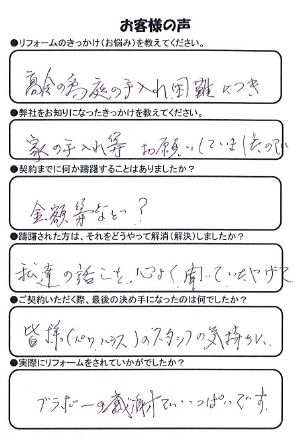 お客様の声
●リフォームのきっかけ(お悩み)を教えてください。
高令の為庭の手入れ困難につき
●弊社をお知りになったきっかけを教えてください。
家の手入れ等 お願いしていましたので
●契約までに何か躊躇することはありましたか?
金額等など?
●躊躇された方は、それをどうやって解消(解決)しましたか?
私達の話こと、心よく聞いていただけて
●ご契約いただく際、最後の決め手になったのは何でしたか?
皆様(パワハウス)のスタッフの気持がよい、
●実際にリフォームをされていかがでしたか?
ブラボーの感謝でいっぱいです。